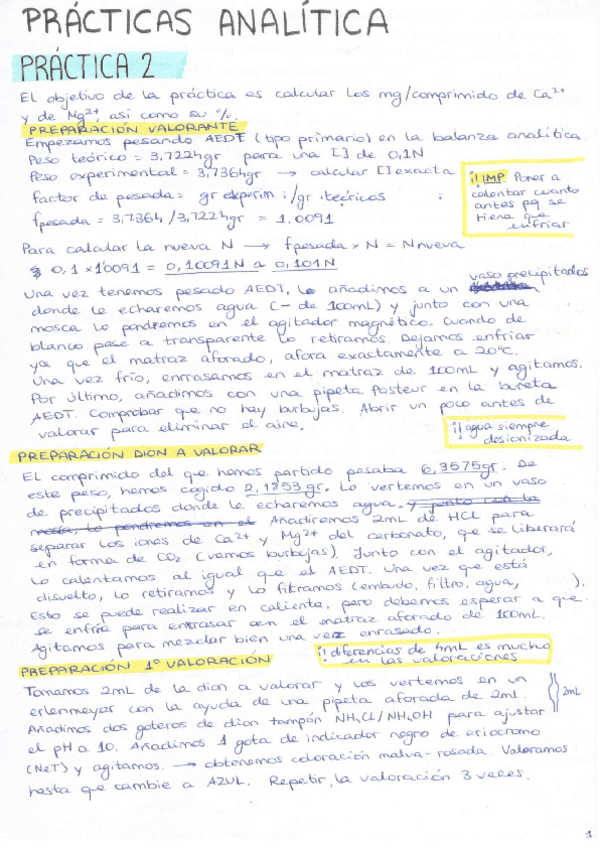 PRÁCTICAS ANALÍTICA
PRÁCTICA 2
El objetivo de la práctica es calcular los mg/comprimido de Ca²⁺
y de Mg²⁺, así como su %.
PREPARACIÓN VALORANTE
Empezamos pesando AEDT (tipo primario) en la balanza analítica.
Peso teórico = 3,7224gr para una [] de 0,1N
Peso experimental = 3,7364gr → calcular [] exacta
factor de pesada = gr experim :/gr .teóricos
fpesada = 3,7364/3,7224gr = 1,0091
¡! IMP. Poner a
calentar cuanto
antes pq se
tiene que
enfriar
Para calcular la nueva N → fpesada × N = Nnueva
0,1 × 1'0091 = 0,10091N a 0,101N
Una vez tenemos pesado AEDT, lo añadimos a un vaso precipitados
donde le echaremos agua (- de 100mL) y junto con una
mosca lo pondremos en el agitador magnético. Cuando de
blanco pase a transparente lo retiramos. Dejamos enfriar
ya que el matraz aforado, afora exactamente a 20ºC.
Una vez frío, enrrasamos en el matraz de 100mL y agitamos.
Por último, añadimos con una pipeta Pasteur en la bureta
AEDT. Comprobar que no hay burbujas. Abrir un poco antes de
valorar para eliminar el aire.
¡! agua siempre
desionizada
PREPARACIÓN DION A VALORAR
El comprimido del que hemos partido pesaba 6,3575gr. De
este peso, hemos cogido 2,1253gr. Lo vertemos en un vaso
de precipitados donde le echaremos agua. y junto con la
mosca, lo pondremos en el Añadiremos 2mL de HCl para
separar los iones de Ca²⁺ y Mg²⁺ del carbonato, que se liberará
en forma de CO₂ (vemos burbujas). Junto con el agitador,
lo calentamos al igual que el AEDT. Una vez que está
disuelto, lo retiramos y lo filtramos (embudo, filtro, agua, ).
Esto se puede realizar en caliente, pero debemos esperar a que
se enfríe para enrasar en el matraz aforado de 100mL.
Agitamos para mezclar bien una vez enrasado.
¡! diferencias de 4mL es mucho
en las valoraciones
PREPARACIÓN 1º VALORACIÓN
Tomamos 2mL de la dion a valorar y los vertemos en un
erlenmeyer con la ayuda de una pipeta aforada de 2ml.
2mL
Añadimos dos goteros de dion tampón NH₄Cl/NH₄OH para ajustar
el pH a 10. Añadimos 1 gota de indicador negro de eriocromo
(NeT) y agitamos. → obtenemos coloración malva-rosada. Valoramos
hasta que cambie a AZUL. Repetir la valoración 3 veces.
1